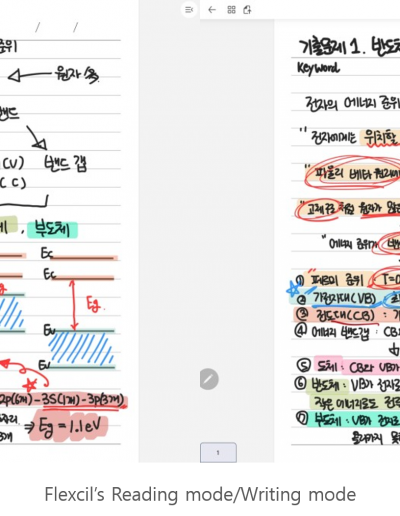 / /
준위
원자/속
밴드
(CV) 밴드 갭
(CC)
체, 부도체
Ec
Ec
Eg Eg
Ev
Ev
2p(6개)-3S(1개)-3p(3개)
⇒ Eg = 1.1eV
기출문제 1. 반도체
Keyword
전자의 에너지 준위
" 전자에게는 위치할
"파울리 배타 원리에
"고체 
"에너지 준위가 밴
① "페르미 준위 T=0
② 가전자대(VB)
③ 전도대(CB) :
④ 에너지 밴드갭 : CB
⑤ 도체 : CB와 VB가
⑥ 반도체 : VB가 전자로
작은 에너지로도 전
⑦ 부도체 : VB가 전자로
1
Flexcil's Reading mode/Writing mode